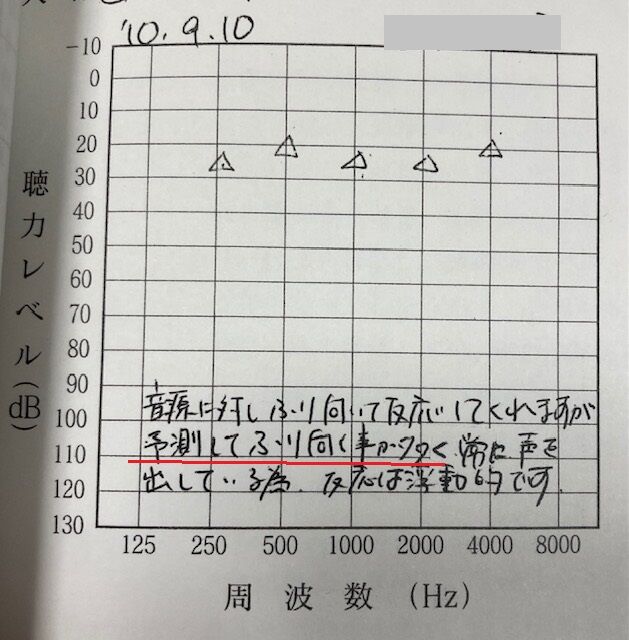 '10.9.10
-10
0
10
20
30
40
50
60
70
80
90
100
110
120
130
聴力レベル(dB)
音源に対しふり向いて反応してくれますが
予測してふり向く事が多く 常に声を
出している為、反応は浮動的です。
125 250 500 1000 2000 4000 8000
周波数 (Hz)